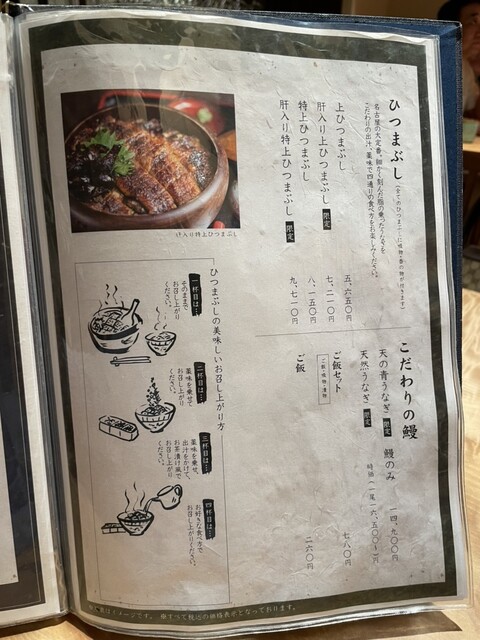 ひつまぶし（全てのひつまぶしに吸物・香の物が付きます）
名古屋の大定番。細かく刻んだ脂の乗ったうなぎを
こだわりの出汁、薬味で四通りの食べ方をお楽しみください。
上ひつまぶし 五、六五〇円
肝入り上ひつまぶし 限定 七、二一〇円
特上ひつまぶし 八、一五〇円
肝入り特上ひつまぶし 限定 九、七一〇円
肝入り特上ひつまぶし
こだわりの鰻
天の青うなぎ 限定 鰻のみ 一四、九〇〇円
天然うなぎ 限定 時価（一尾一六、五〇〇〜）円
ご飯セット 七八〇円
ご飯・吸物・漬物
ご飯 二六〇円
ひつまぶしの美味しいお召し上がり方
一杯目は…
そのままで
お召し上がり
ください。
二杯目は…
薬味を乗せて
お召し上がり
ください。
三杯目は…
薬味を乗せ、
出汁をかけて、
お茶漬け風で
お召し上がり
ください。
四杯目は…
お好きな食べ方で
お召し上がり
ください。
※写真はイメージです。 ※すべて税込の価格表示となっております。